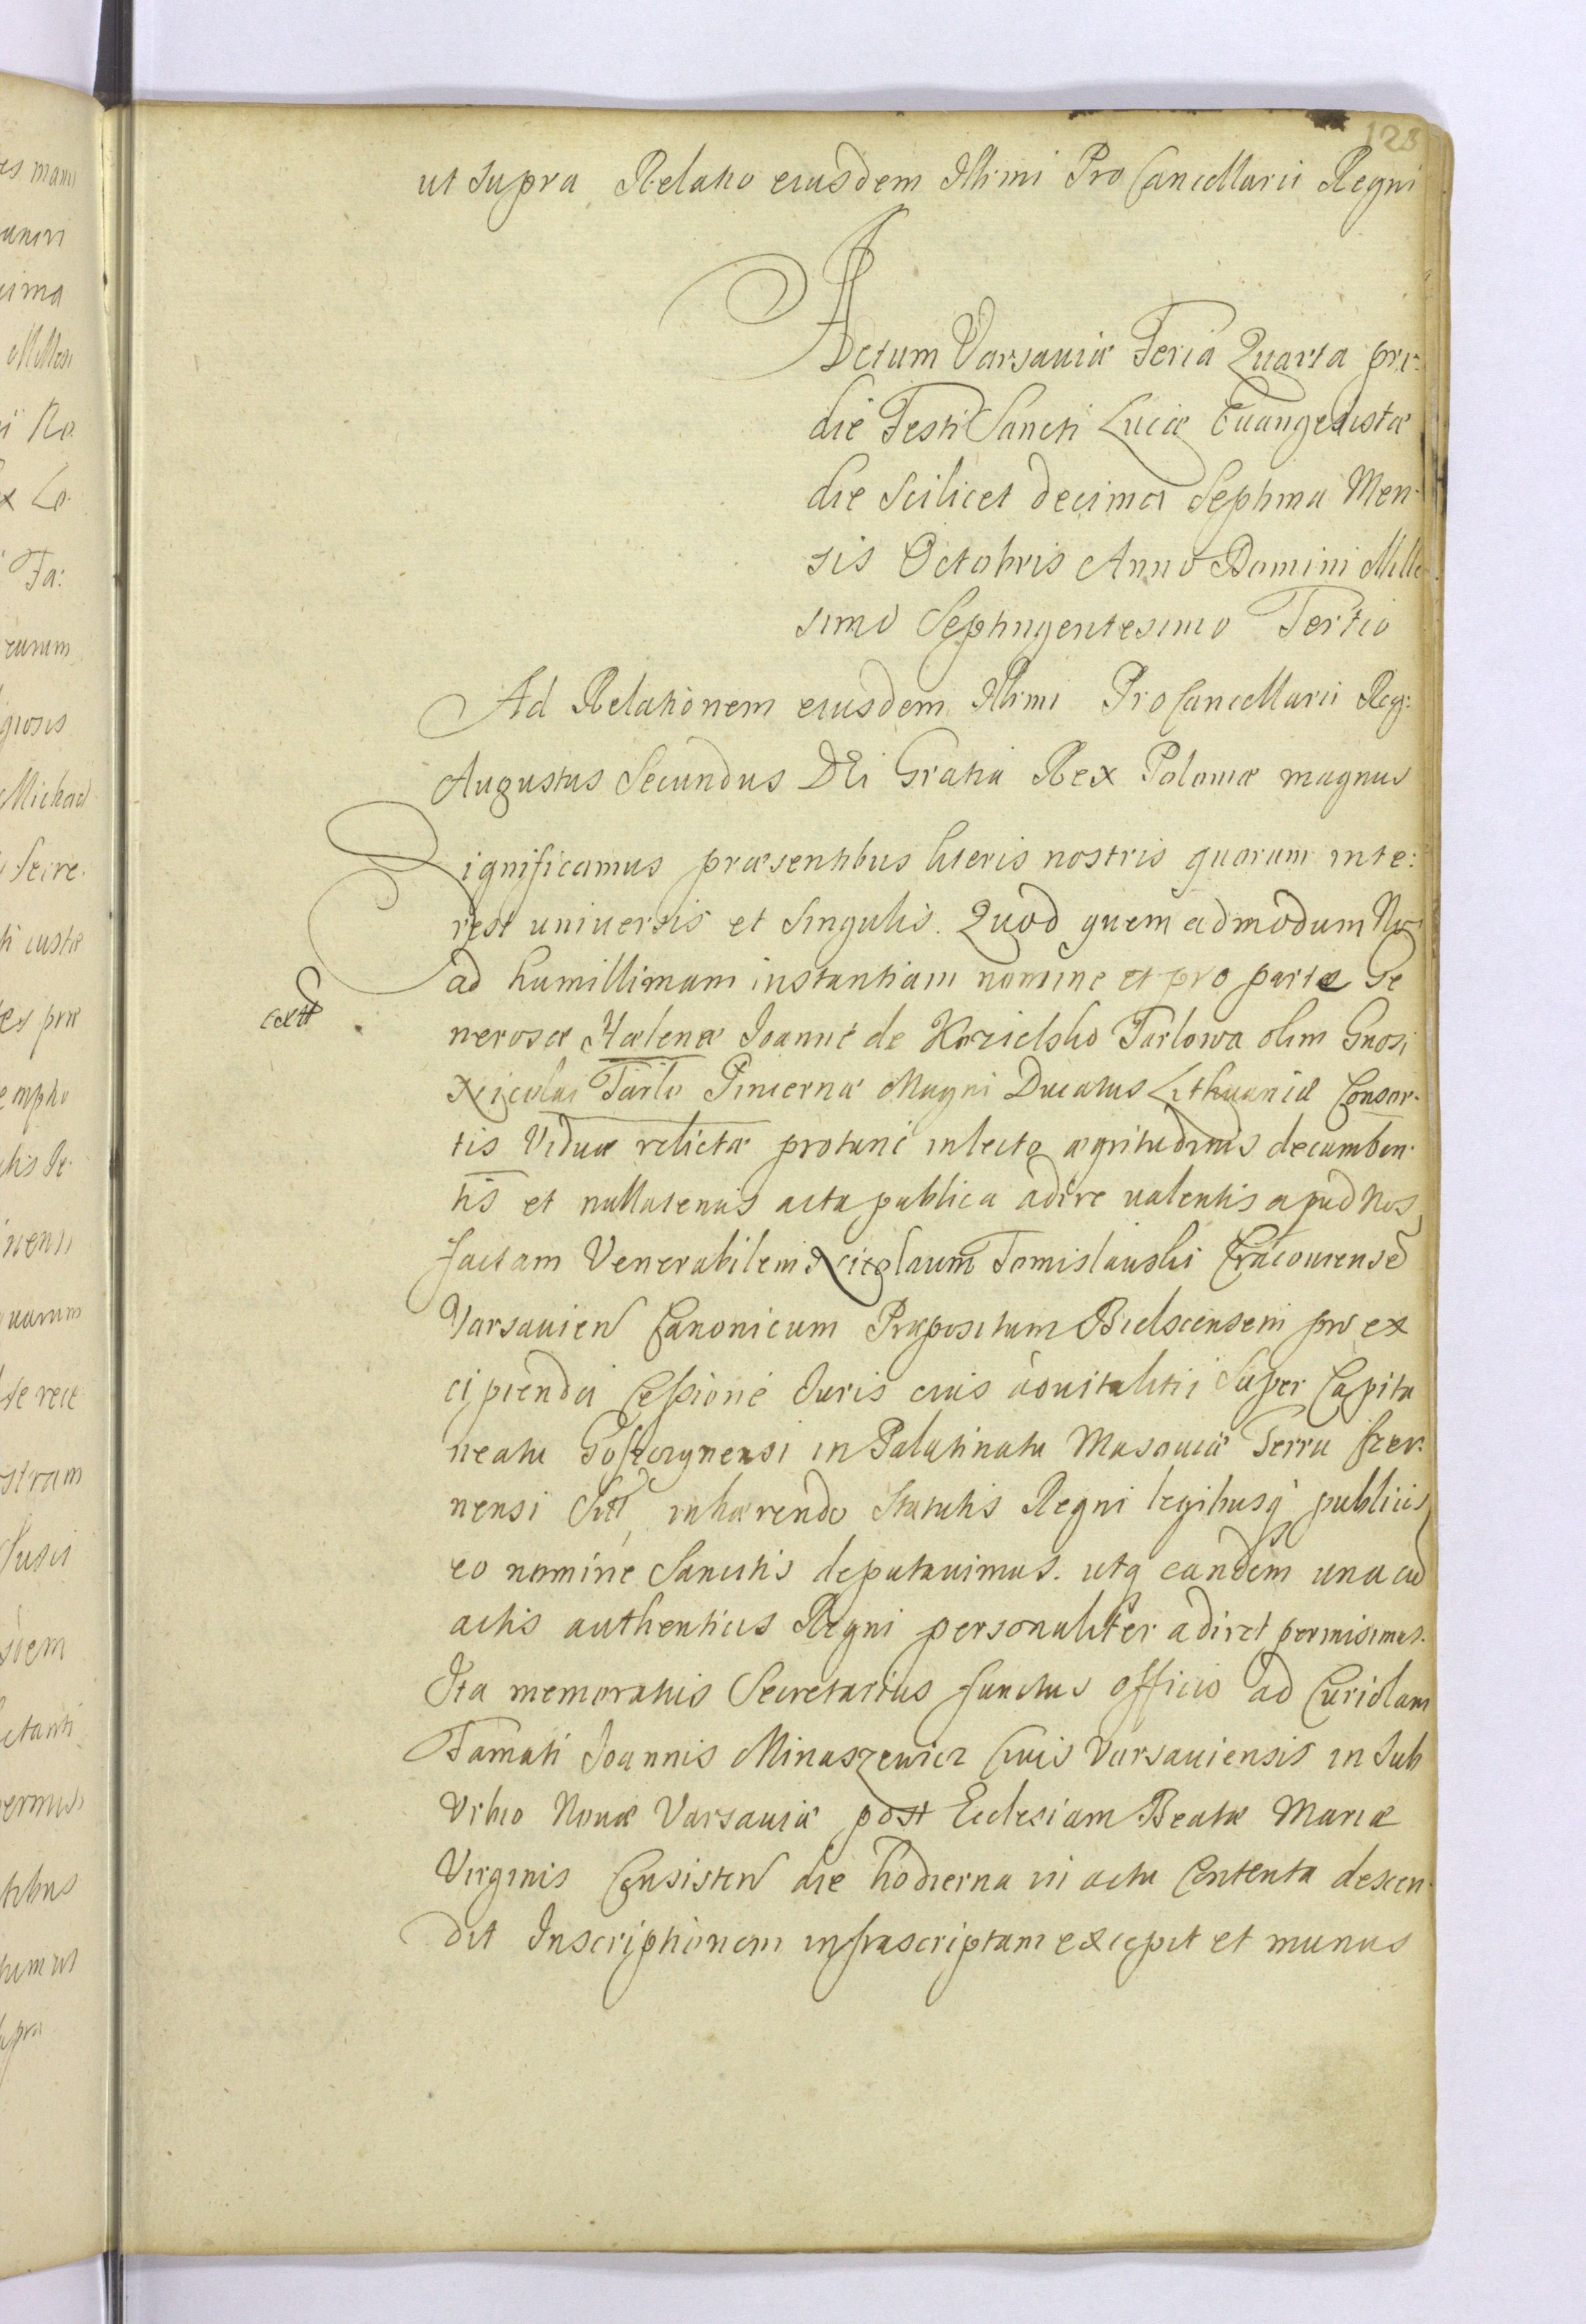 128
ut supra Relatio eiusdem Illmi ProCancellarii Regni
Actum Varsaviæ Feria Quarta pri-
die Festi Sancti Lucæ Euangelistæ
die scilicet decima Septima Men-
sis Octobris Anno Domini Mille
simo Septingentesimo Tertio
Ad Relationem eiusdem Illmi ProCancellarii Reg:
Augustus Secundus DEi Gratia Rex Poloniæ magnus
Significamus præsentibus literis nostris quorum inte:
rest uniuersis et singulis. Quod quem admodum Nos
ad humillimam instantiam nomine et pro parte Ge
nerosæ Hælenæ Joannæ de Kozielsko Tarlowa olim Gnosi
Nicolai Tarlo Pincernæ Magni Ducatus Lithuaniæ Consor-
tis Viduæ relictæ protunc in lecto ægritudinis decumben-
tis et nullatenus acta publica adire ualentis apud Nos
factam Venerabilem Nicolaum Tomislauski Cracouiensē
Varsauien Canonicum Præpositum Bielscensem pro ex
cipienda Cessione Iuris sui aduitalitii super Capita
neatu Gostzynensi in Palatinatu Masouiæ Terra Czer-
nensi inhærendo Statutis Regni legibusq publicis
eo nomine Sancitis deputauimus. utq eandem una cū
actis authenticis Regni personaliter adiret permisimus.
Ita memoratus Secretarius functus officio ad Curiolam
Famati Joannis Minaszewicz Ciuis Varsauiensis in Sub
Vrbio Nouæ Varsauiæ post Ecclesiam Beatæ Mariæ
Virginis Consisten die hodierna in actu Contenta descen-
dit Inscriptionem infrascriptam excepit et munus